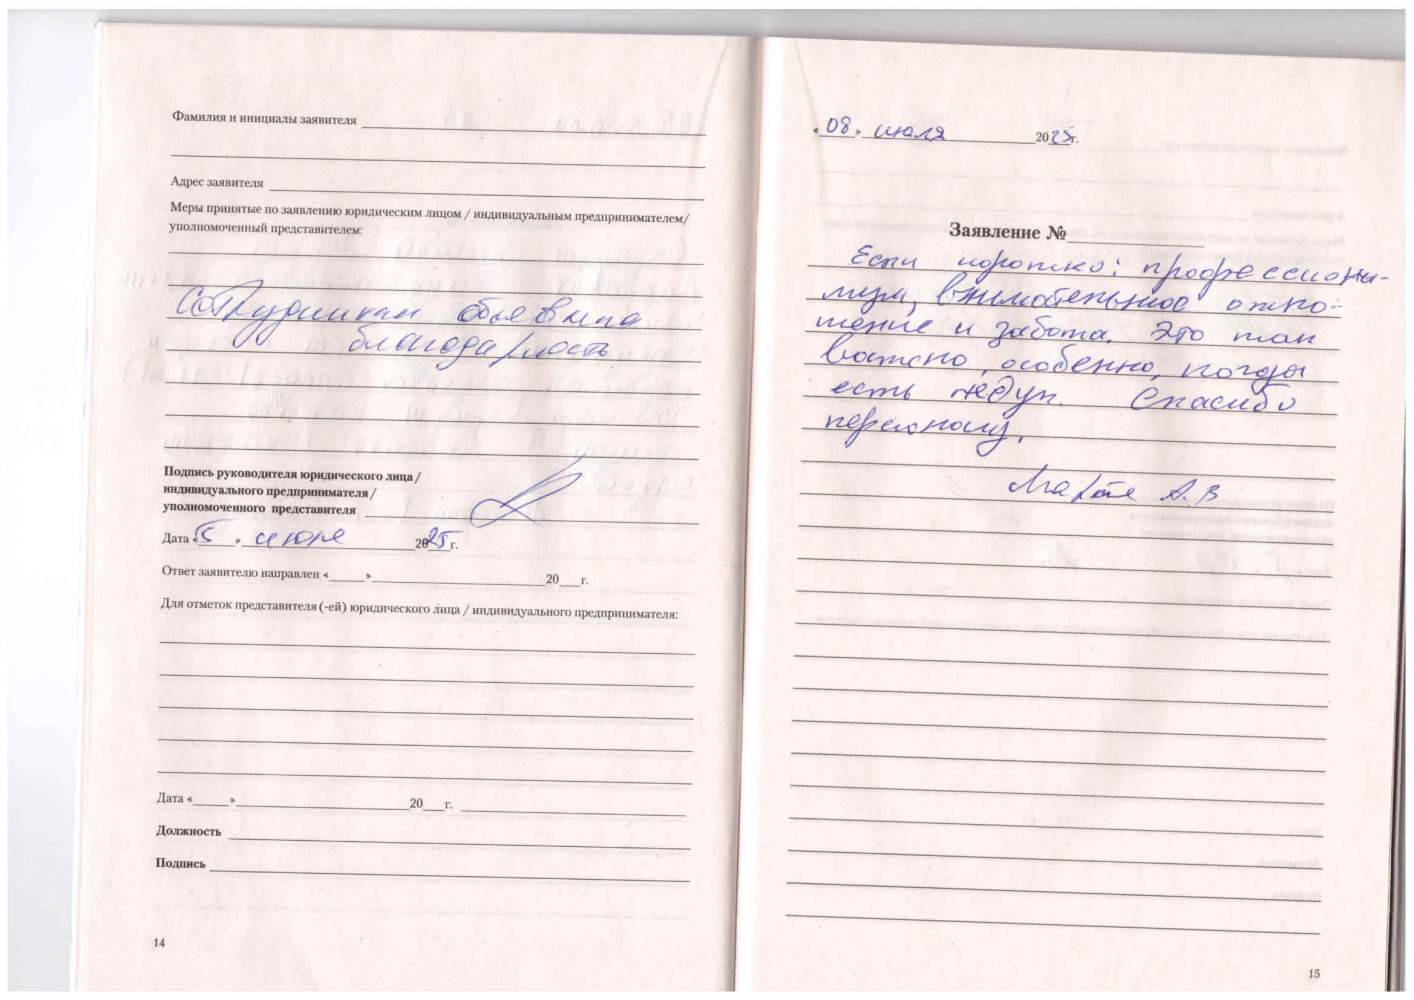 Фамилия и инициалы заявителя
Адрес заявителя
Меры принятые по заявлению юридическим лицом / индивидуальным предпринимателем/
уполномоченный представителем:
Сотрудникам объявлена
благодарность
Подпись руководителя юридического лица /
индивидуального предпринимателя /
уполномоченного представителя
Дата «5» июля 2025 г.
Ответ заявителю направлен «____»____20___г.
Для отметок представителя (-ей) юридического лица / индивидуального предпринимателя:
Дата «____»____20___г.
Должность
Подпись
14
«08» июля 2025г.
Заявление №
Если коротко: профессиона-
лизм, внимательное отно-
шение и забота. Это так
важно, особенно, когда
есть недуг. Спасибо
персоналу.
А.В
15